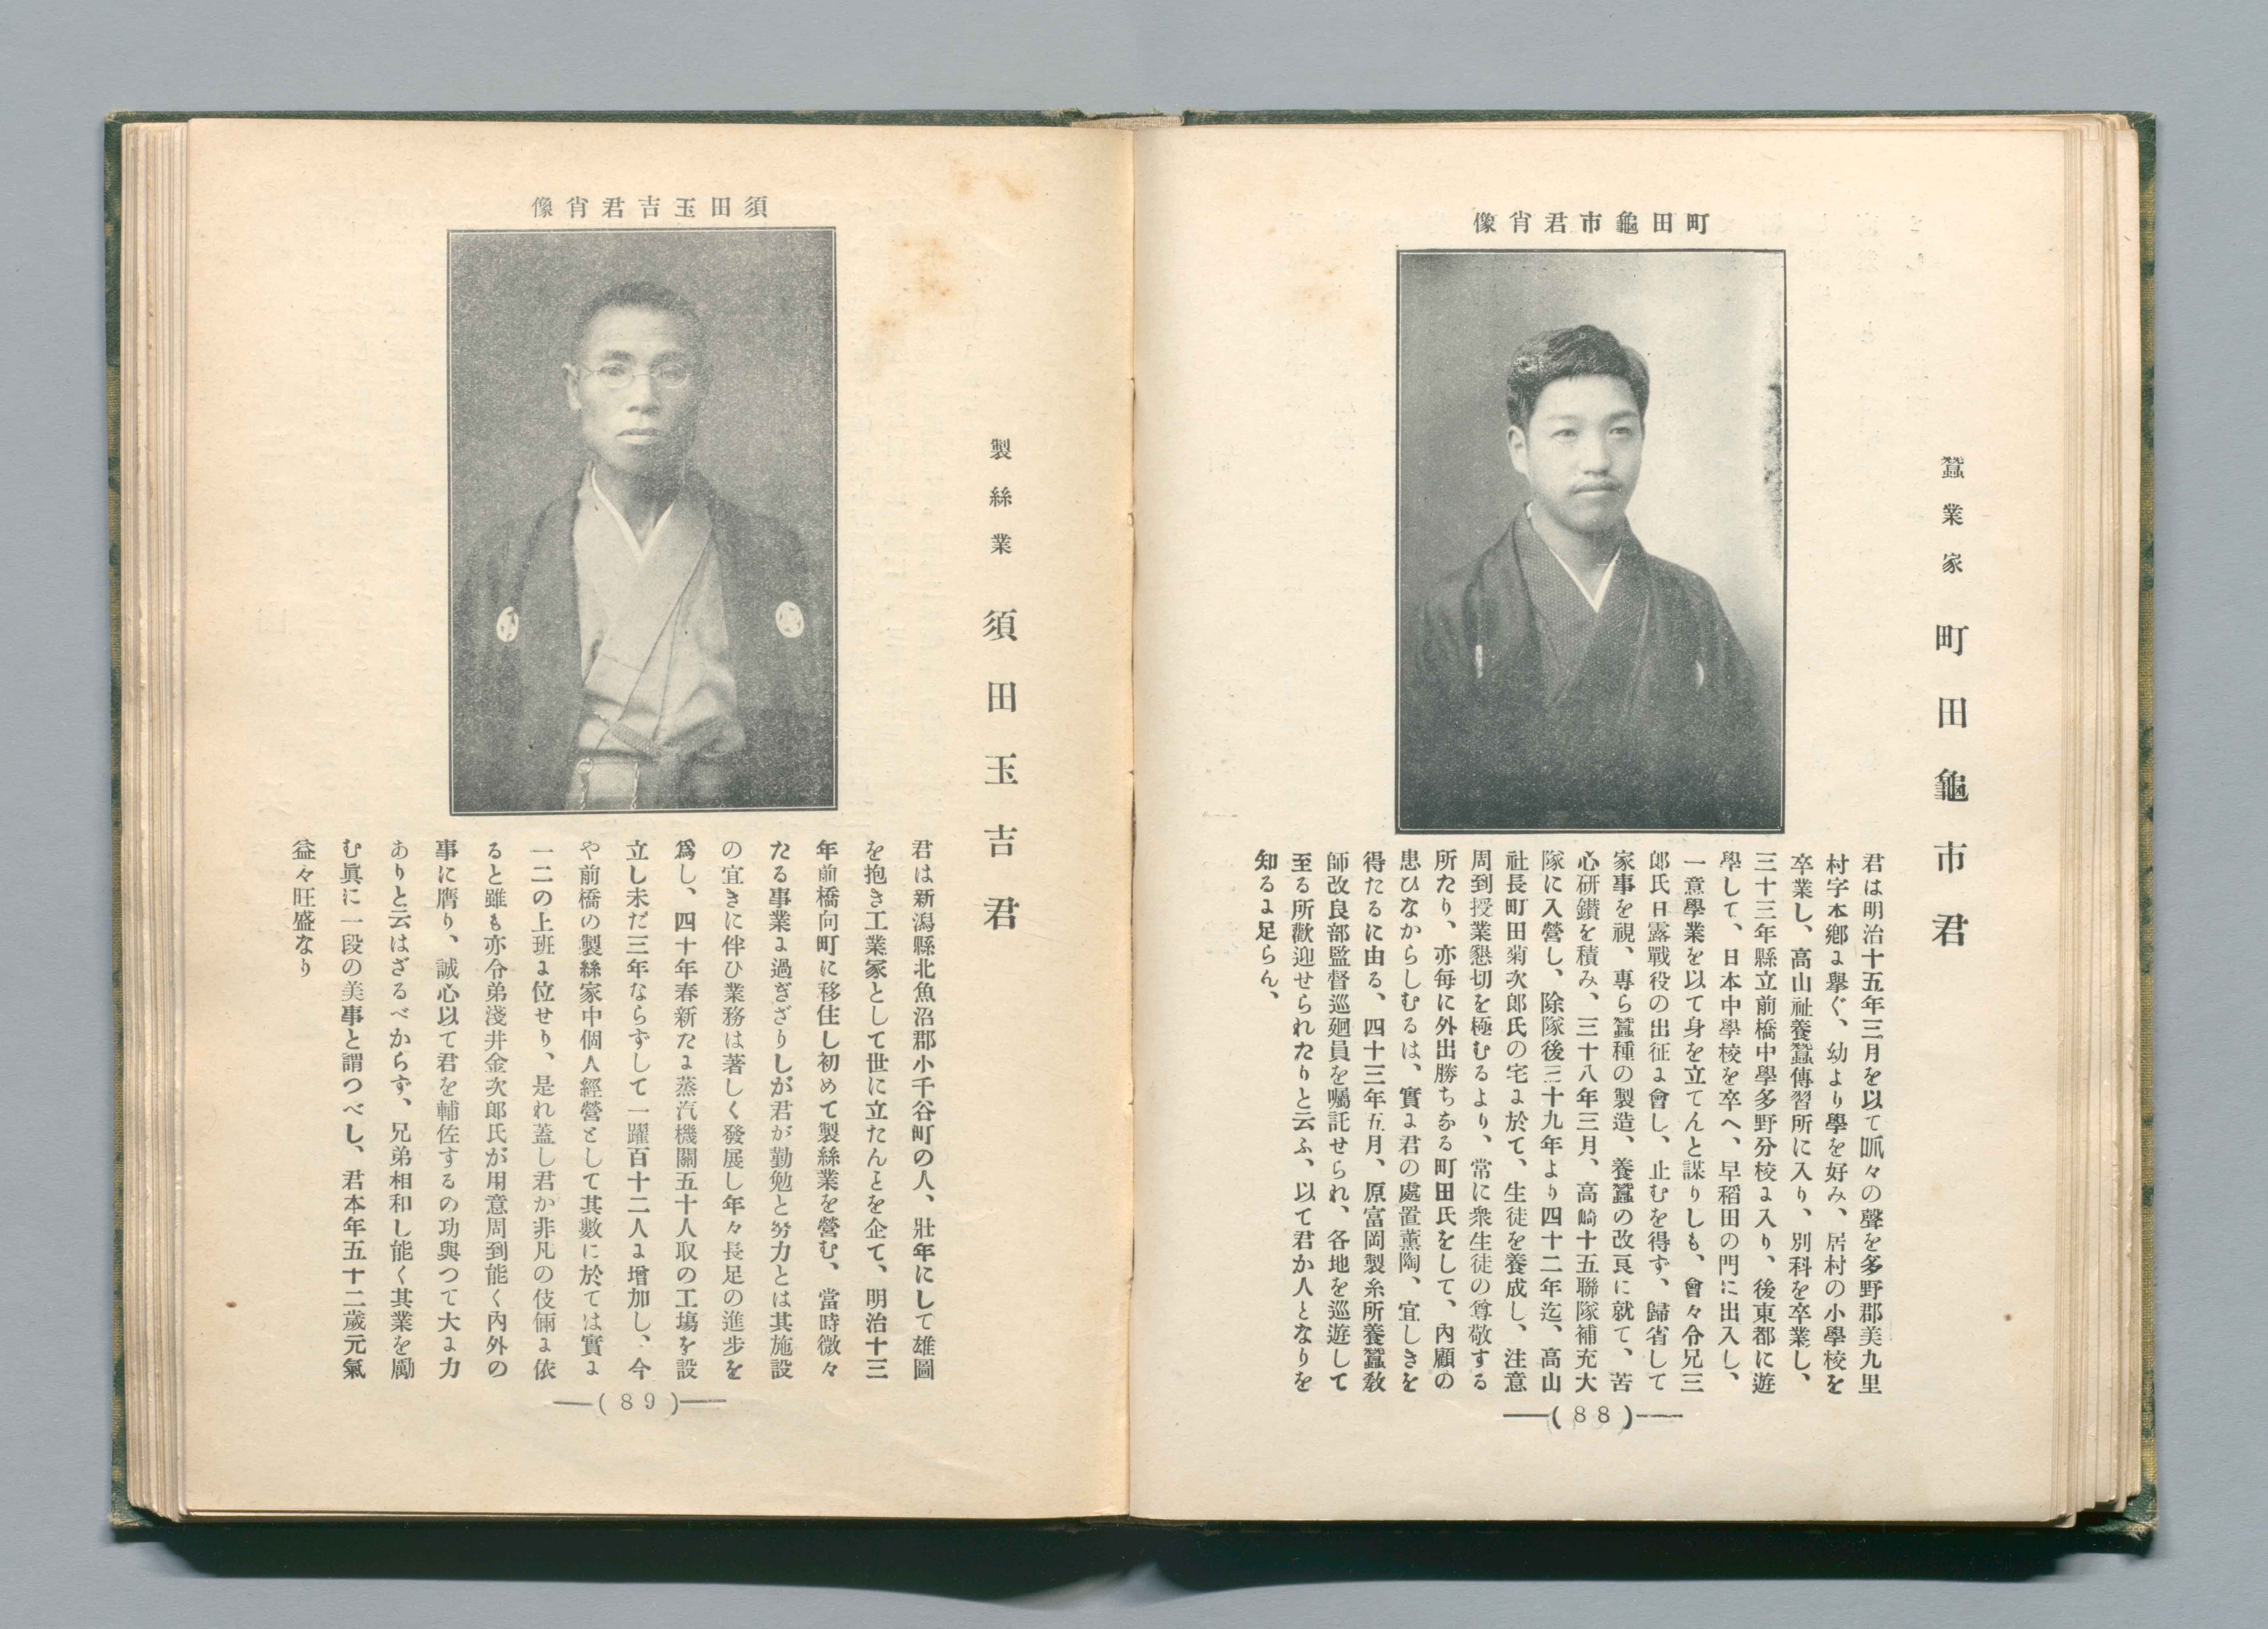 蠶業家 町田龜市君
町田龜市君肖像
君は明治十五年三月を以て呱々の聲を多野郡美九里
村字本鄕に擧ぐ、幼より學を好み、居村の小學校を
卒業し、高山社養蠶傳習所に入り、別科を卒業し、
三十三年縣立前橋中學多野分校に入り、後東都に遊
學して、日本中學校を卒へ、早稻田の門に出入し、
一意學業を以て身を立てんと謀りしも、會々令兄三
郎氏日露戰役の出征に會し、止むを得ず、歸省して
家事を視、專ら蠶種の製造、養蠶の改良に就て、苦
心硏鑽を積み、三十八年三月、高崎十五聯隊補充大
隊に入營し、除隊後三十九年より四十二年迄、高山
社長町田菊次郎氏の宅に於て、生徒を養成し、注意
周到授業懇切を極むるより、常に衆生徒の尊敬する
所たり、亦每に外出勝ちなる町田氏をして、內顧の
患ひなからしむるは、實に君の處置薰陶、宜しきを
得たるに由る、四十三年五月、原富岡製糸所養蠶敎
師改良部監督巡廻員を囑託せられ、各地を巡遊して
至る所歡迎せられたりと云ふ、以て君か人となりを
知るに足らん、
―(88)―
製絲業 須田玉吉君
須田玉吉君肖像
君は新潟縣北魚沼郡小千谷町の人、壯年にして雄圖
を抱き工業家として世に立たんとを企て、明治十三
年前橋向町に移住し初めて製絲業を營む、當時微々
たる事業に過ぎざりしが君が勤勉と努力とは其施設
の宜きに伴ひ業務は著しく發展し年々長足の進步を
爲し、四十年春新たに蒸汽機關五十人取の工塲を設
立し未だ三年ならずして一躍百十二人に增加し、今
や前橋の製絲家中個人經營として其數に於ては實に
一二の上班に位せり、是れ蓋し君か非凡の伎倆に依
ると雖も亦令弟淺井金次郎氏が用意周到能く內外の
事に膺り、誠心以て君を輔佐するの功與つて大に力
ありと云はざるべからず、兄弟相和し能く其業を勵
む眞に一段の美事と謂つべし、君本年五十二歲元氣
益々旺盛なり
―(89)―